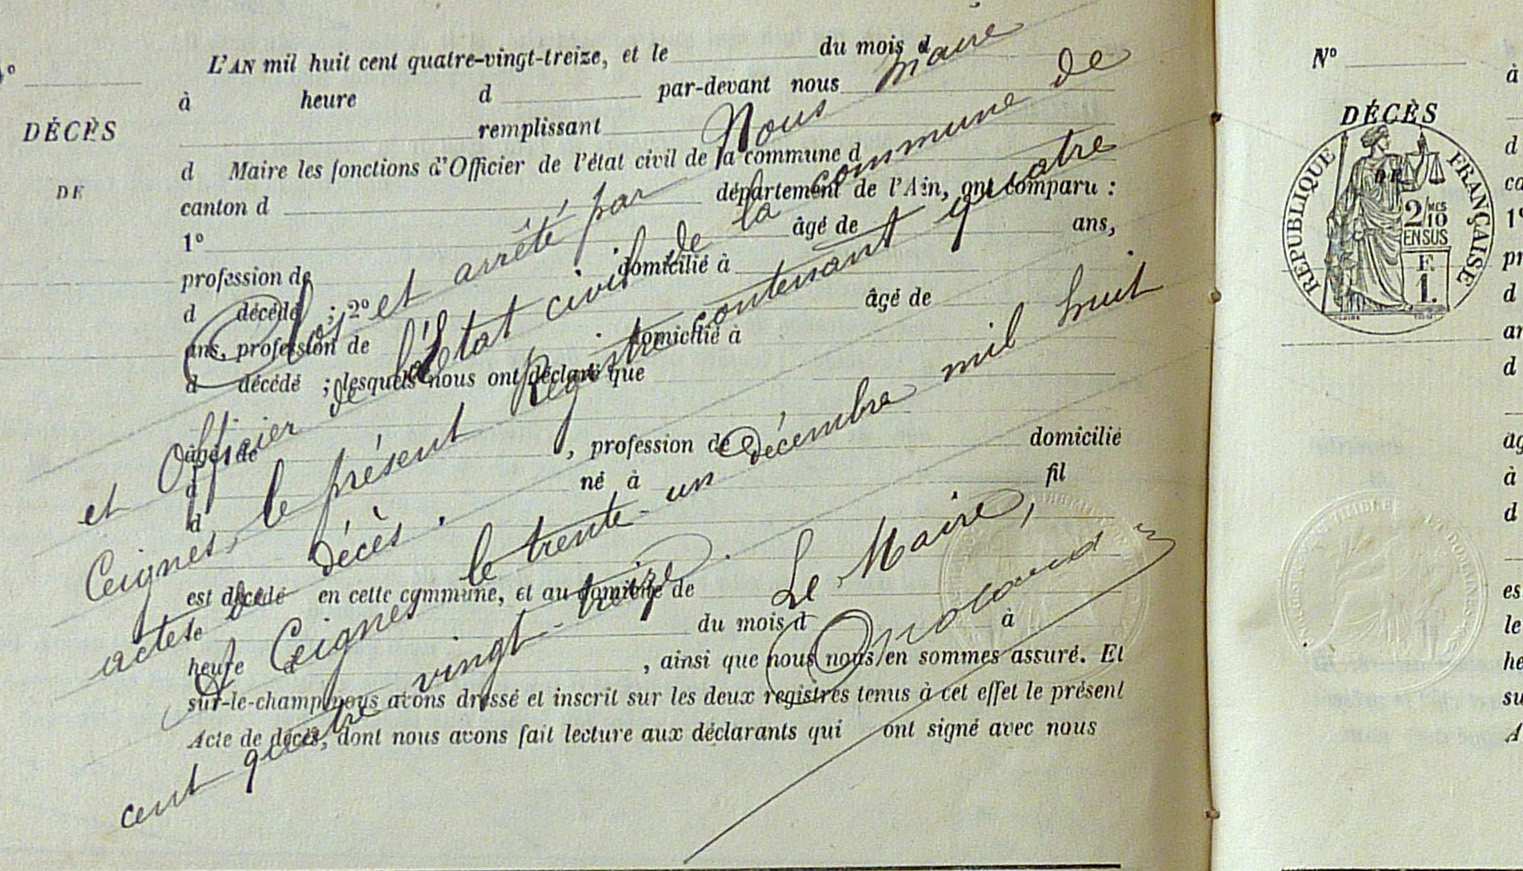 L'AN mil huit cent quatre-vingt-treize, et le du mois d
à heure d par-devant nous
DÉCÈS
remplissant
d Maire les fonctions d'Officier de l'état civil de la commune d
DE
canton d département de l'Ain, ont comparu :
1° âgé de ans,
profession de domicilié à
d décédé ; 2° âgé de
ans, profession de domicilié à
d décédé ; lesquels nous ont déclaré que
âgé de , profession de domicilié
d né à fil
d
est décédé en cette commune, et au domicile de
le du mois d à
heure d , ainsi que nous nous en sommes assuré. Et
sur-le-champ nous avons dressé et inscrit sur les deux registres tenus à cet effet le présent
Acte de décès, dont nous avons fait lecture aux déclarants qui ont signé avec nous
Clos et arrêté par Nous Maire
et Officier de l'état civil de la commune de
Ceignes, le présent Registre contenant quatre
actes de décès.
à Ceignes le trente-un décembre mil huit
cent quatre vingt-treize.
Le Maire,
N°
DÉCÈS
DE
RÉPUBLIQUE FRANÇAISE
2/10
EN SUS
F.
1.
à
d
1°
d
d
à
d
es
le
he
su
A